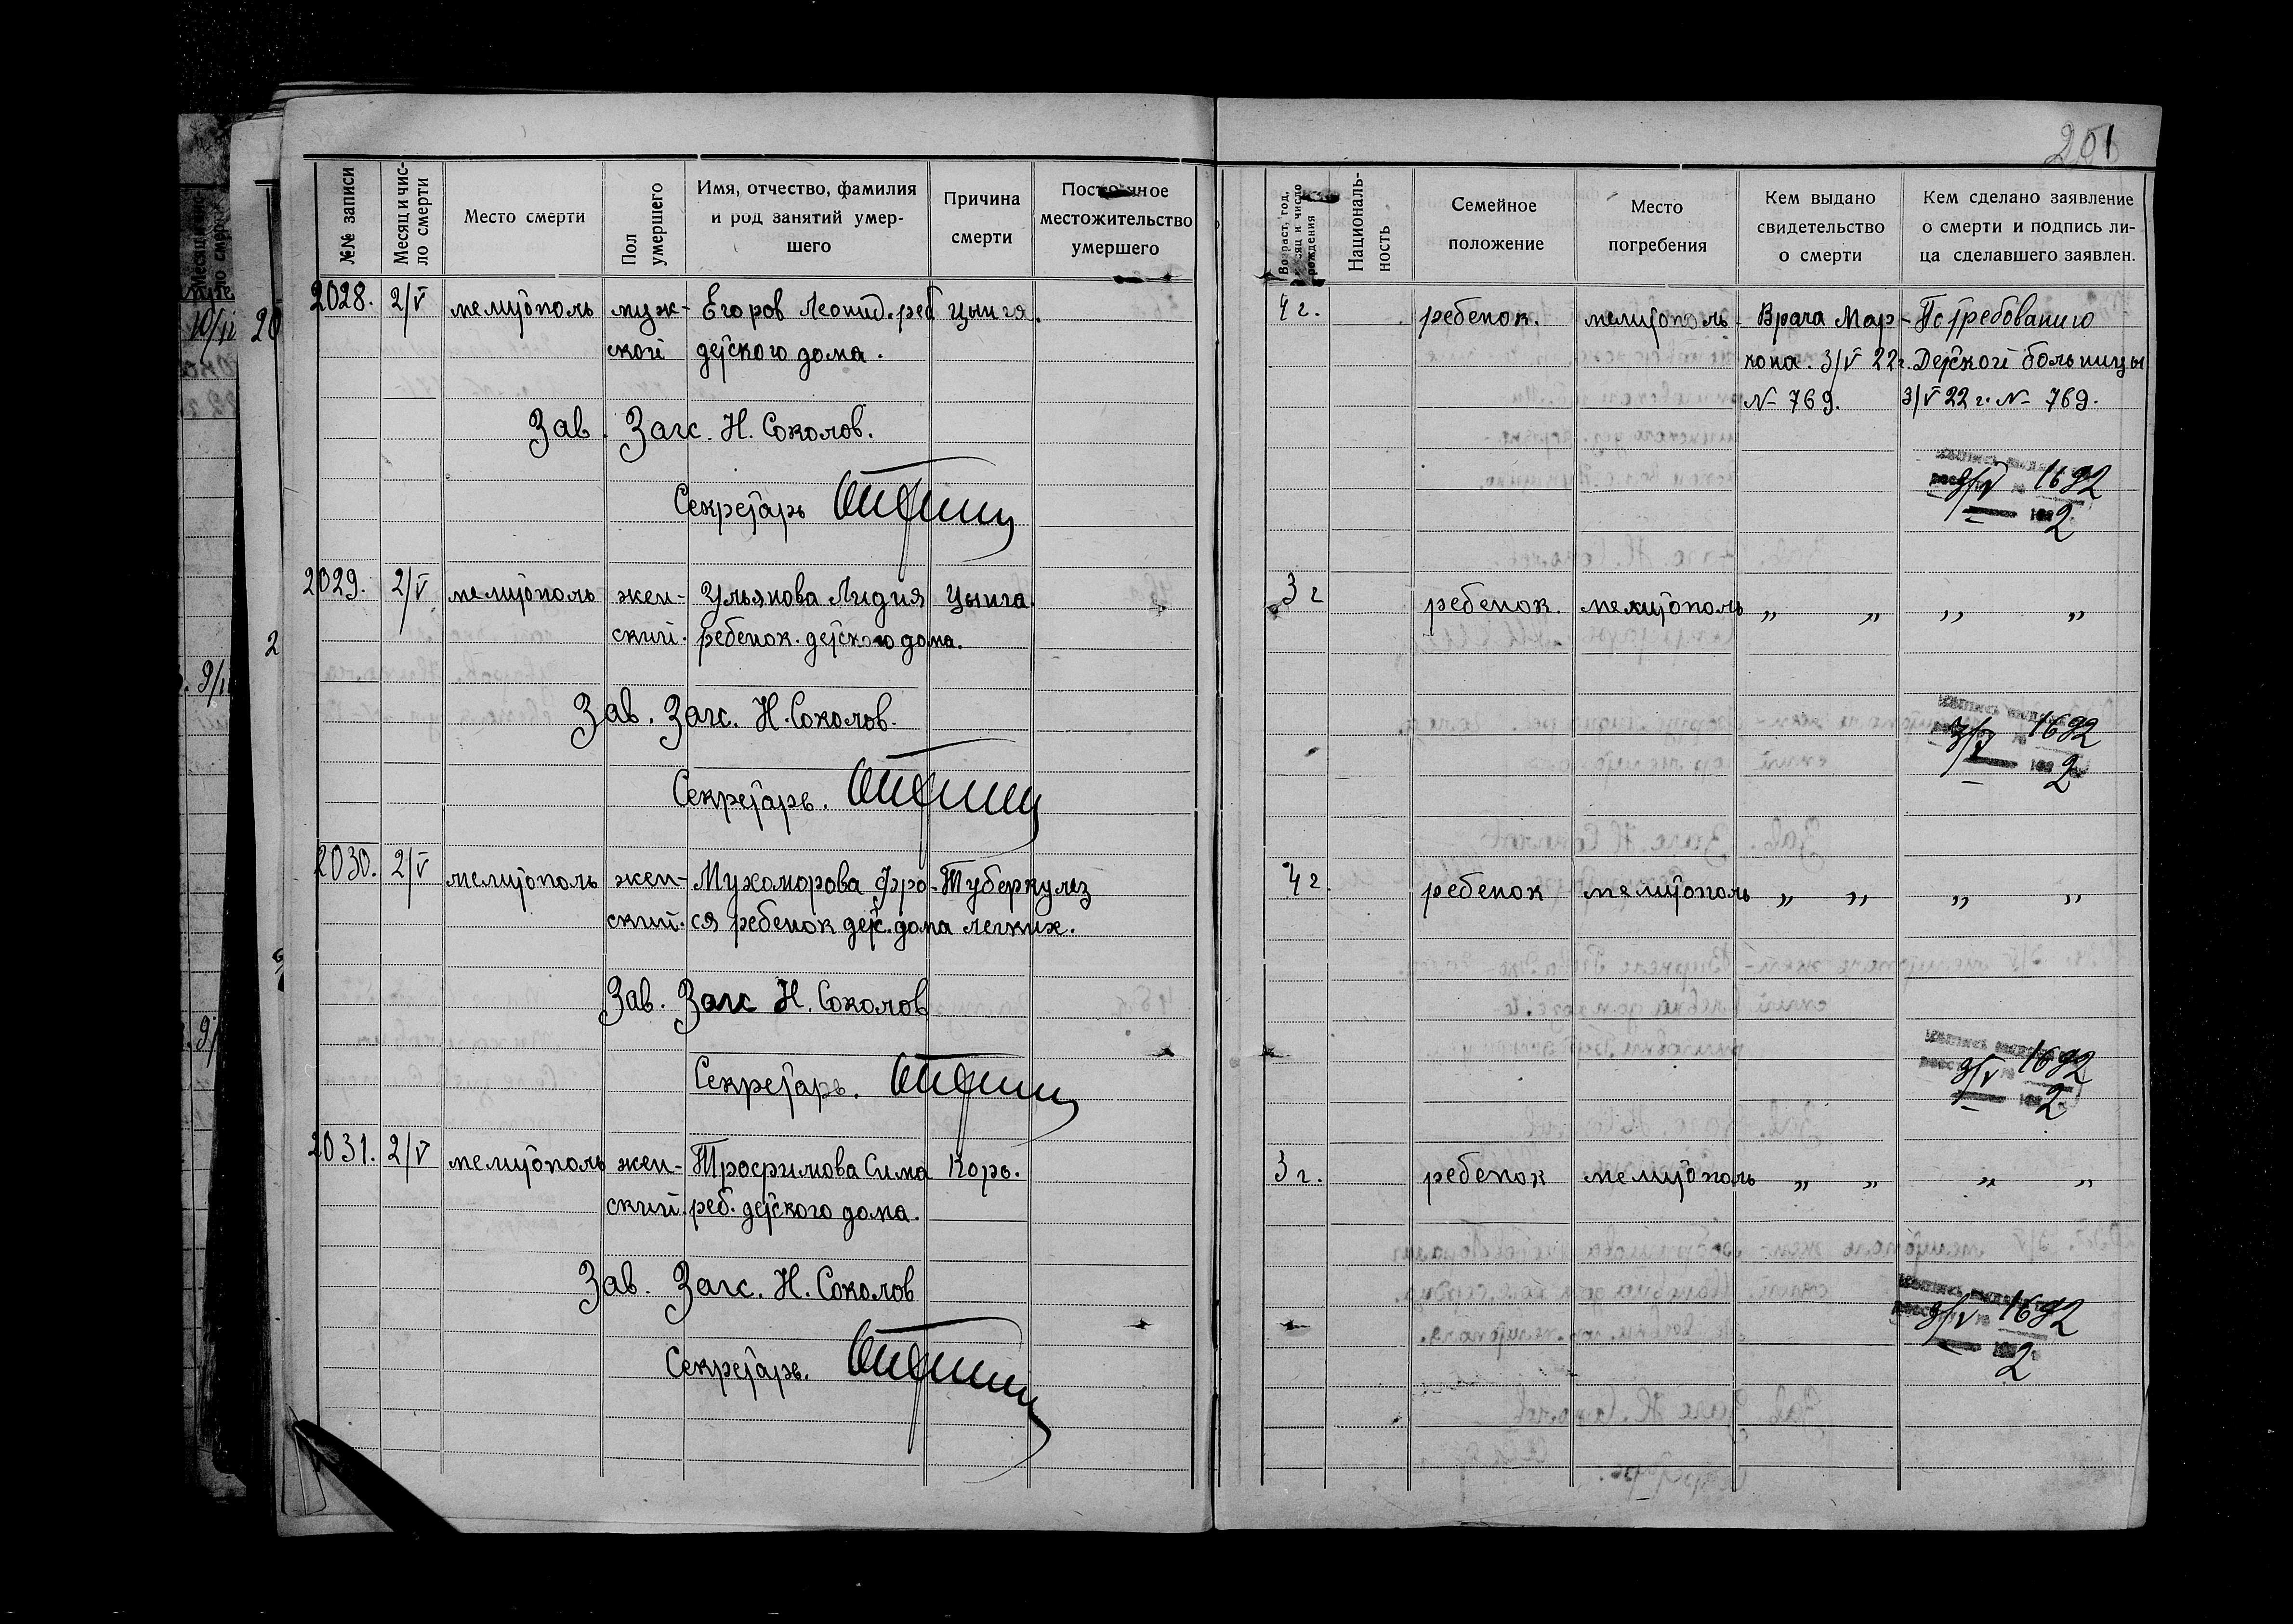 201
№№ записи
Месяц и чис-
ло смерти
Место смерти
Пол
умершего
Имя, отчество, фамилия
и род занятий умер-
шего
Причина
смерти
Постоянное
местожительство
умершего
Возраст, год,
месяц и число
рождения
Националь-
ность
Семейное
положение
Место
погребения
Кем выдано
свидетельство
о смерти
Кем сделано заявление
о смерти и подпись ли-
ца сделавшего заявлен.
2028. 2/V мелитополь муж- Егоров Леонид. реб цынга. 4 г. ребенок. мелитополь Врача Мар- По требованию
ской детского дома. кона. 3/V 22г. Детской больницы
N- 769. 3/V 22 г. N- 769.
Зав. Загс. Н. Соколов.
Секретарь
3/V 1692
2
2029. 2/V мелитополь жен- Ульянова Лидия Цынга. 3 г ребенок. мелитополь „ „ „ „
ский. ребенок. детского дома.
Зав. Загс. Н. Соколов.
3/V 1692
2
Секретарь.
2030. 2/V мелитополь жен- Мухоморова Фро- Туберкулез 4 г. ребенок мелитополь „ „ „ „
ский. ся ребенок дет. дома легких.
Зав. Загс Н. Соколов
Секретарь.
3/V 1692
2
2031. 2/V мелитополь жен- Трофимова Сима Корь. 3 г. ребенок мелитополь „ „ „ „
ский. реб. детского дома.
Зав. Загс. Н. Соколов
3/V 1692
2
Секретарь.